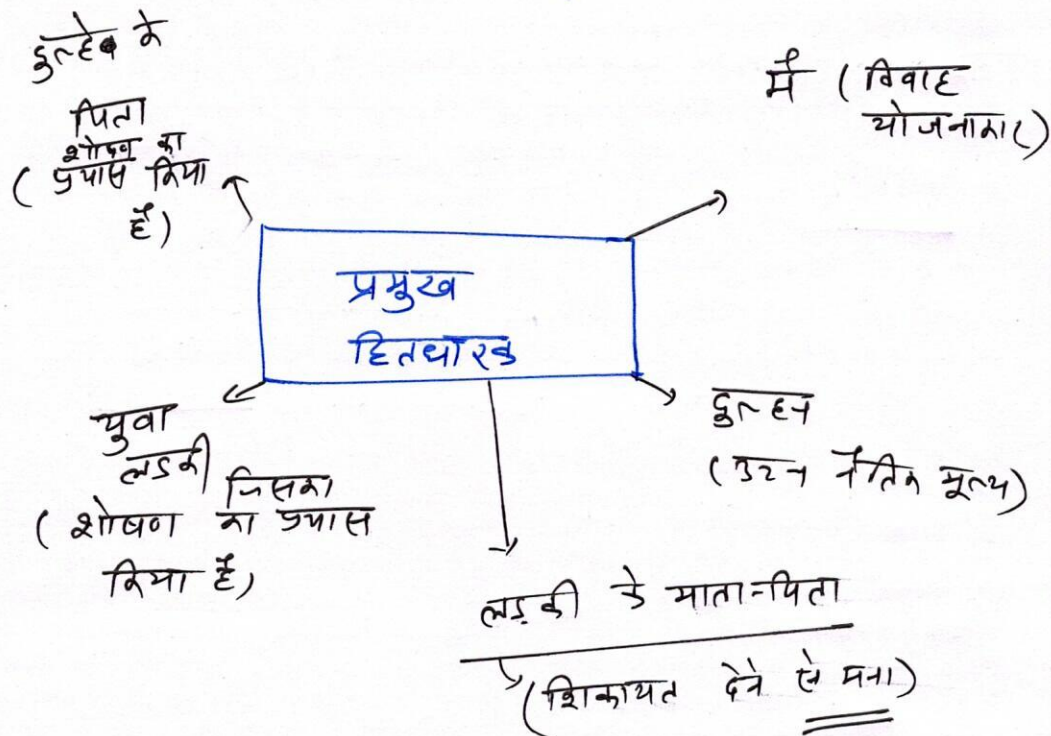 दुल्हे के
पिता
(शोषण का
प्रयास किया
है)
मैं (विवाह
योजनाकार)
प्रमुख
हितधारक
युवा
लडकी
(जिसका
शोषण का प्रयास
किया है)
दुल्हन
(उच्च नैतिक मूल्य)
लड़की के माता-पिता
(शिकायत देने से मना)